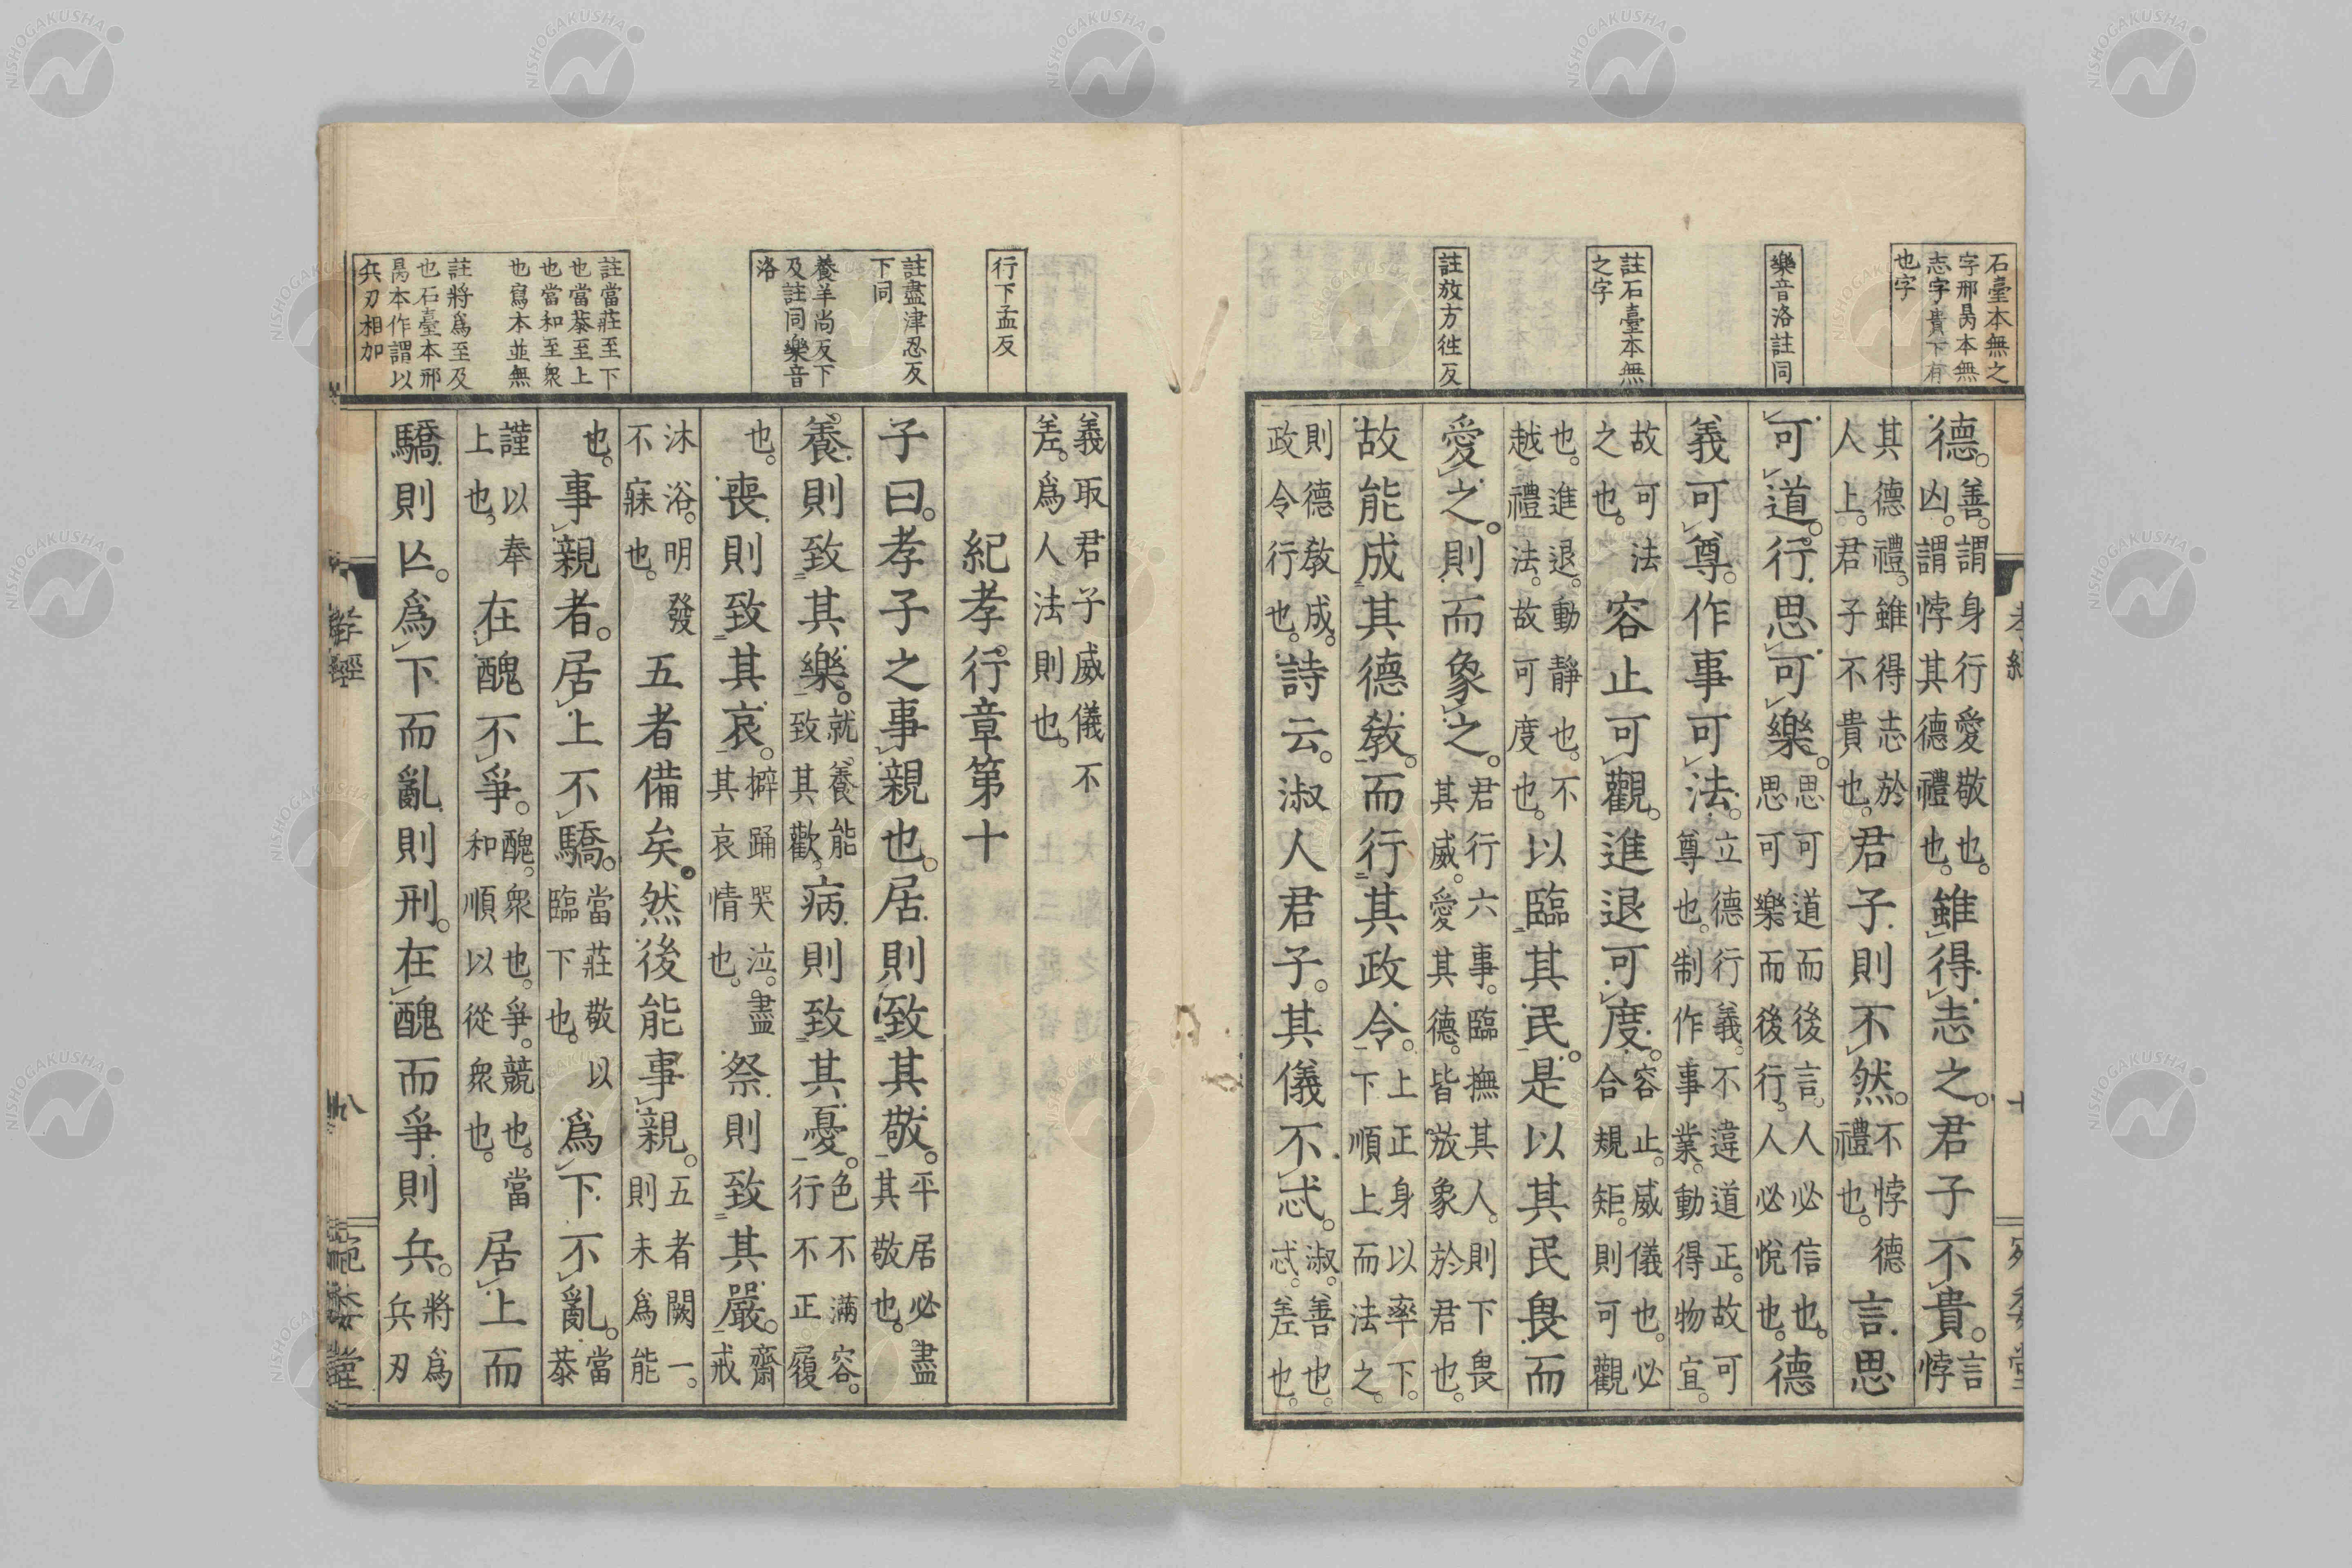 石臺本無之
字邢昺本無
志字貴下有
也字
樂音洛註同
註石臺本無
之字
註放方徃反
德。善。謂身行愛敬也。
凶。謂悖其德禮也。雖得志之。君子不貴。言
悖
其德禮。雖得志於
人上。君子不貴也。君子則不然。不悖德
禮也。言思
可道。行思可樂。思可道而後言。人必信也。
思可樂而後行。人必悅也。德
義可尊。作事可法。立德行義。不違道正。故可
尊也。制作事業。動得物宜。
故可法
之也。容止可觀。進退可度。容止。威儀也。必
合規矩。則可觀
也。進退。動靜也。不
越禮法。故可度也。以臨其民。是以其民畏而
愛之。則而象之。君行六事。臨撫其人。則下畏
其威。愛其德。皆放象於君也。
故能成其德敎。而行其政令。上正身以率下。
下順上而法之。
則德敎成。
政令行也。詩云。淑人君子。其儀不忒。淑。善也。
忒。差也。
孝經
行下孟反
註盡津忍反
下同
養羊尚反下
及註同樂音
洛
註當莊至下
也當恭至上
也當和至衆
也寫本並無
註將爲至及
也石臺本邢
昺本作謂以
兵刃相加
義取君子威儀不
差。爲人法則也。
紀孝行章第十
子曰。孝子之事親也。居則致其敬。平居必盡
其敬也。
養則致其樂。就養能
致其歡。病則致其憂。色不滿容。
行不正履
也。喪則致其哀。擗踊哭泣。盡
其哀情也。祭則致其嚴。齋
戒
沐浴。明發
不寐也。五者備矣。然後能事親。五者闕一。
則未爲能
也。事親者。居上不驕。當莊敬以
臨下也。爲下不亂。當
恭
謹以奉
上也。在醜不爭。醜。衆也。爭。競也。當
和順以從衆也。居上而
驕則亾。爲下而亂則刑。在醜而爭則兵。將爲
兵刃